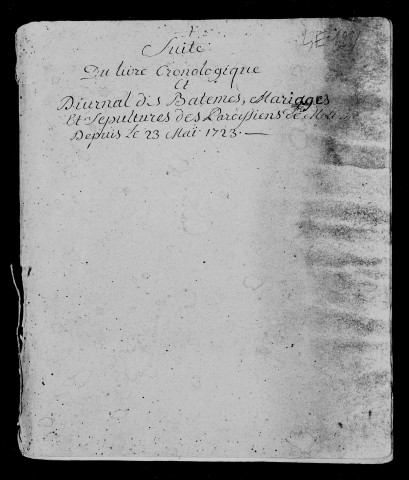 Suite
Du livre Cronologique
et
Diurnal des Batemes, Mariages
Et Sepultures des Paroissiens de
Depuis Le 23 Mai 1723.